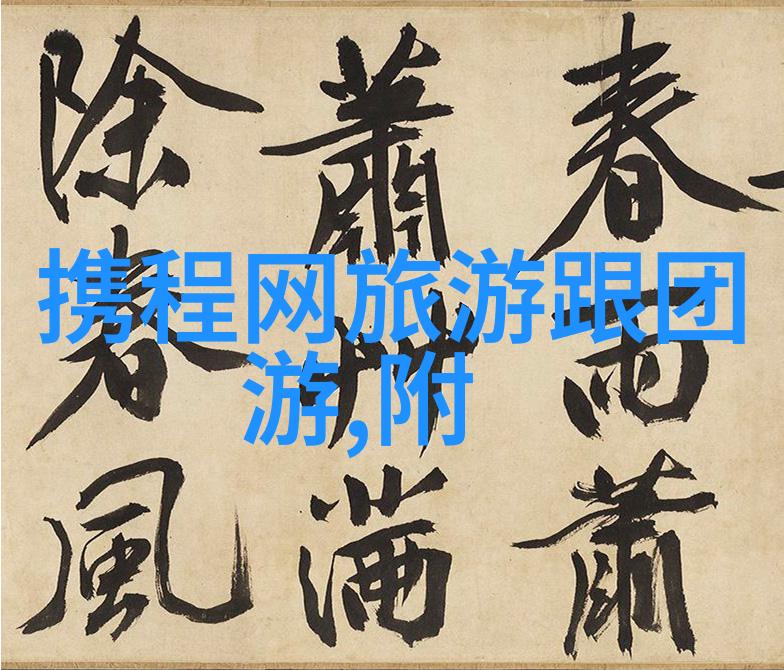 春雨蕭
蕭艸滿
除春風
携程网旅游跟团
游,附